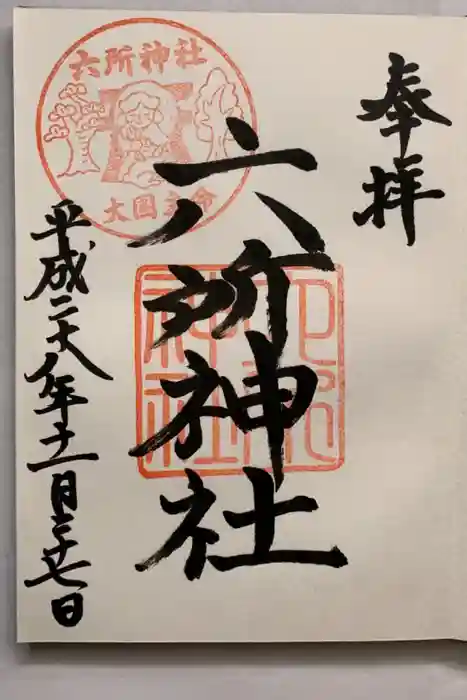 奉拝
六所神社
六所神社
大国主命
六所神社
平成二十八年十一月二十七日